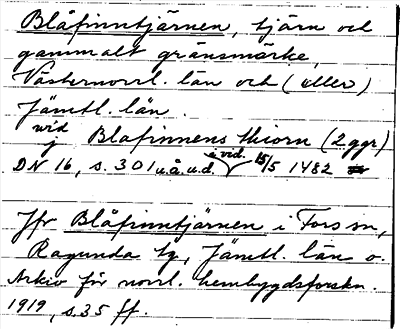 Blåfinntjärnen, tjärn och
gammalt gränsmärke,
Västernorrl. län och (eller)
Jämtl. län.
wid Blafinnens thiorn (2 ggr)
DN 16, s. 301 u.å.u.d. vid. 15/5 1482
Jfr Blåfinntjärnen i Fors sn,
Ragunda tg, Jämtl. län o.
Arkiv för norrl. hembygdsforskn.
1919, s. 35 ff.